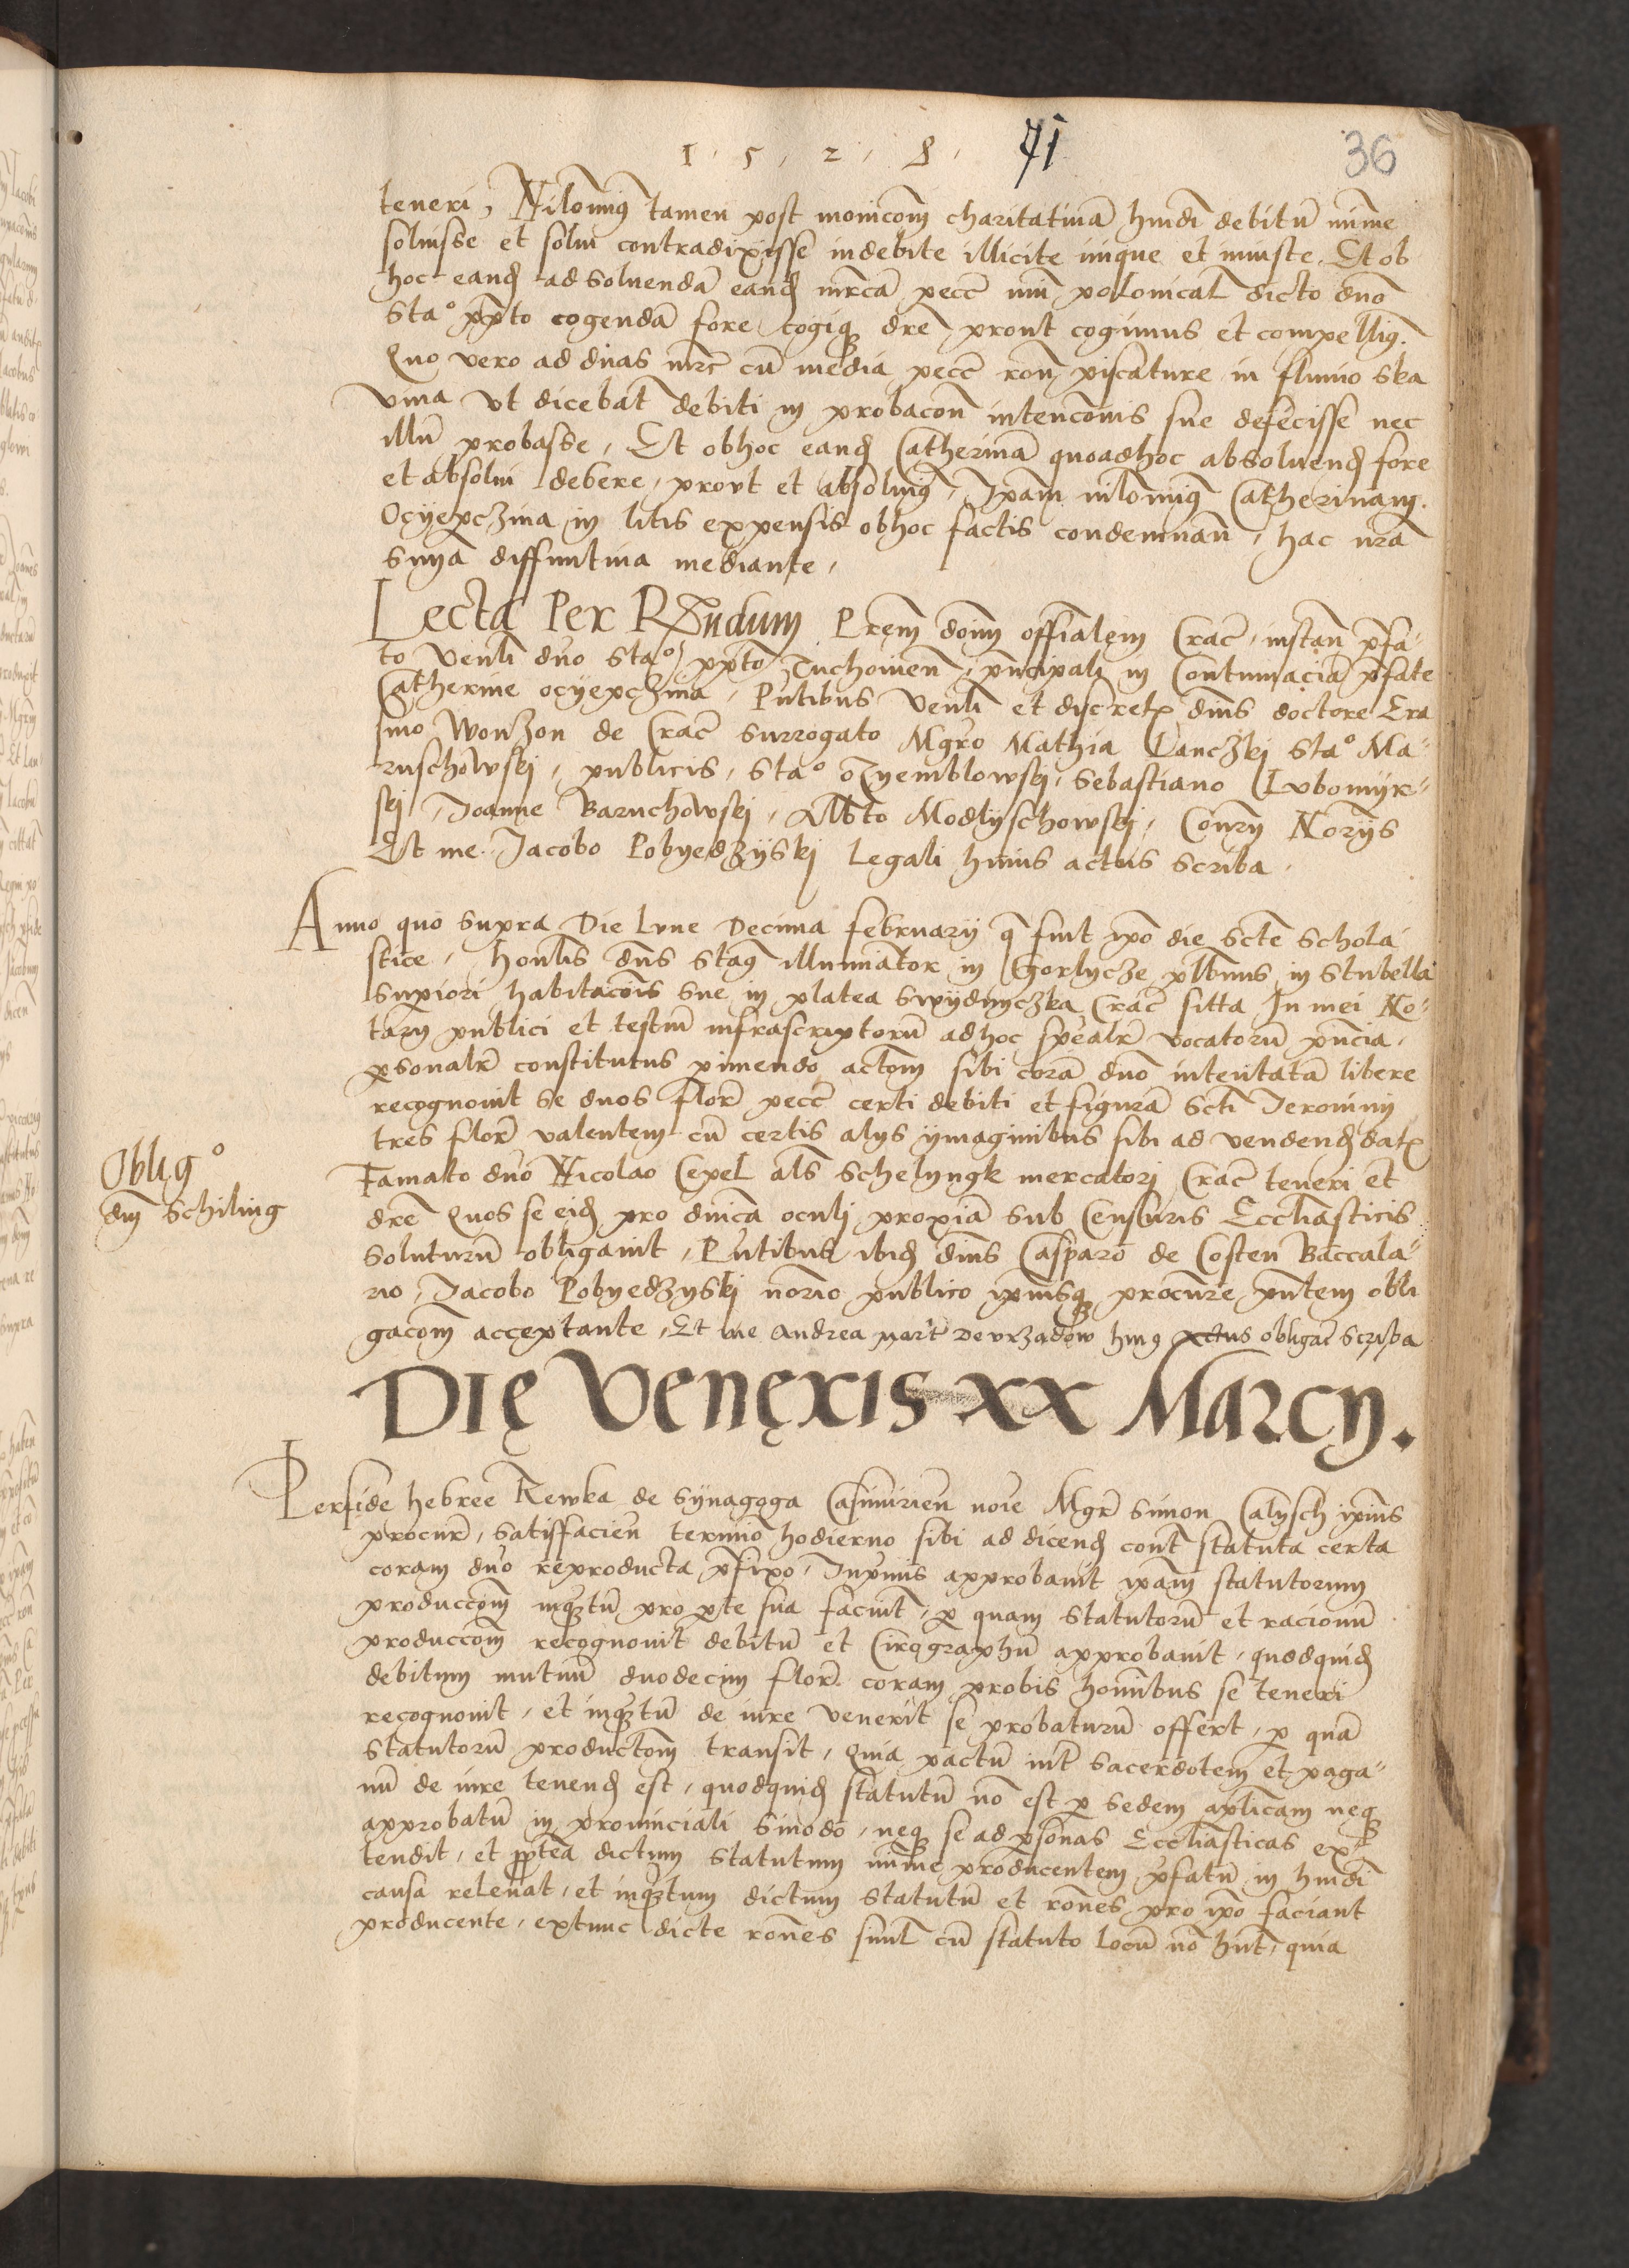 1 5 2 8 71 36
teneri, Nilominus tamen post monicom charitativa hmdi debitu mime
solvisse et solvi contradixisse indebite illicite inique et iniuste. Et ob
hoc eand ad solvenda eand mrca pecc num polonical dicto dno
Stao ppto cogenda fore cogiq dre prout cogimus et compellig.
Quo vero ad duas mrc cu media pecc ron piscature in fluvio Ska
vina vt dicebat debiti in probacon intenconis sue defecisse nec
illu probasse, Et obhoc eand Catherina quoadhoc absoluend fore
et absolui debere, provt et absoluig, Ipam nilominig Catherinam.
Oczyepczina in litis expensis obhoc factis condemnan, hac nra
snya diffinitiva mediante,
Lecta Per Rndum Prem doim offialem Crac, instan pfa-
to venli dno Stao ppto Tuchovien, pncipali in Contumacia pfate
Catherine oczyepczina, Pntibus venli et discret dnis doctore Era
smo Wonzon de Crac surrogato Mgro Mathia Lanczki Stao Ma-
ruschowskj, publicis, Stao Ozyemblowskj, Sebastiano Lvbomyr-
skj, Joanne Baruchowskj, Albto Modlyschowskj, Conry Norys
Et me Jacobo Pobyedzyskj Legali huius actus scriba.
Anno quo supra Die Lvne Decima februarij q fuit ipo die Scte Schola
stice, honlis dns Stas illuminator in Gorlycze plbnus in stubella
supiori habitacois sue in platea swydnyczka Crac sitta In mei No-
tary publici et testiu infrascriptoru adhoc spealr vocatoru pncia,
psonalr constitutus pimendo actom sibi cora dno intentata libere
recognovit se duos flor pecc certi debiti et figura Scti Jeronimi
tres flor valentem cu certis alys ymaginibus sibi ad vendend dat
Famato dno Nicolao Cepel als Schelyngk mercatorj Crac teneri et
dre Quos se eid pro dnica oculj propia sub Censuris Eccliasticis
soluturu obligavit, Pntibus ibid dnis Casparo de Costen Baccala-
rio, Jacobo Pobyedzyskj norio publico ipiusq procure pntem obli
gacom acceptante, Et me Andrea mart de vrzadow hmg actus obligac scriba
Oblig°
dm Schiling
Die Veneris XX Marcy.
Perfide hebree Rewka de Synagoga Casimirien noie Mgr Simon Calysch ipius
procur, satisfacien termino hodierno sibi ad dicend cont statuta certa
coram dno reproducta pfixo, Inpimis approbavit ipam statutorum
produccom inqtum pro pte sua facuit, p quam statutoru et racionu
produccom recognovit debitu et Cirographu approbavit, quodquid
debitum mutuu duodecim flor coram probis hominbus se teneri
recognovit, et inqtum de iure venerit se probaturu offert, p qua
statutoru productom transit, Quia pactu int sacerdotem et paga-
nu de iure tenend est, quodquid statutu no est p sedem aplicam neq
approbatu in provinciali sinodo, neq se ad psonas Eccliasticas ex-
tendit, et pptea dictum statutum mime producentem pfatu in hmdi
causa relevat, et inqtum dictum statutu et rones pro ipo faciant
producente, extunc dicte rones siml cu statuto locu no hnt, quia